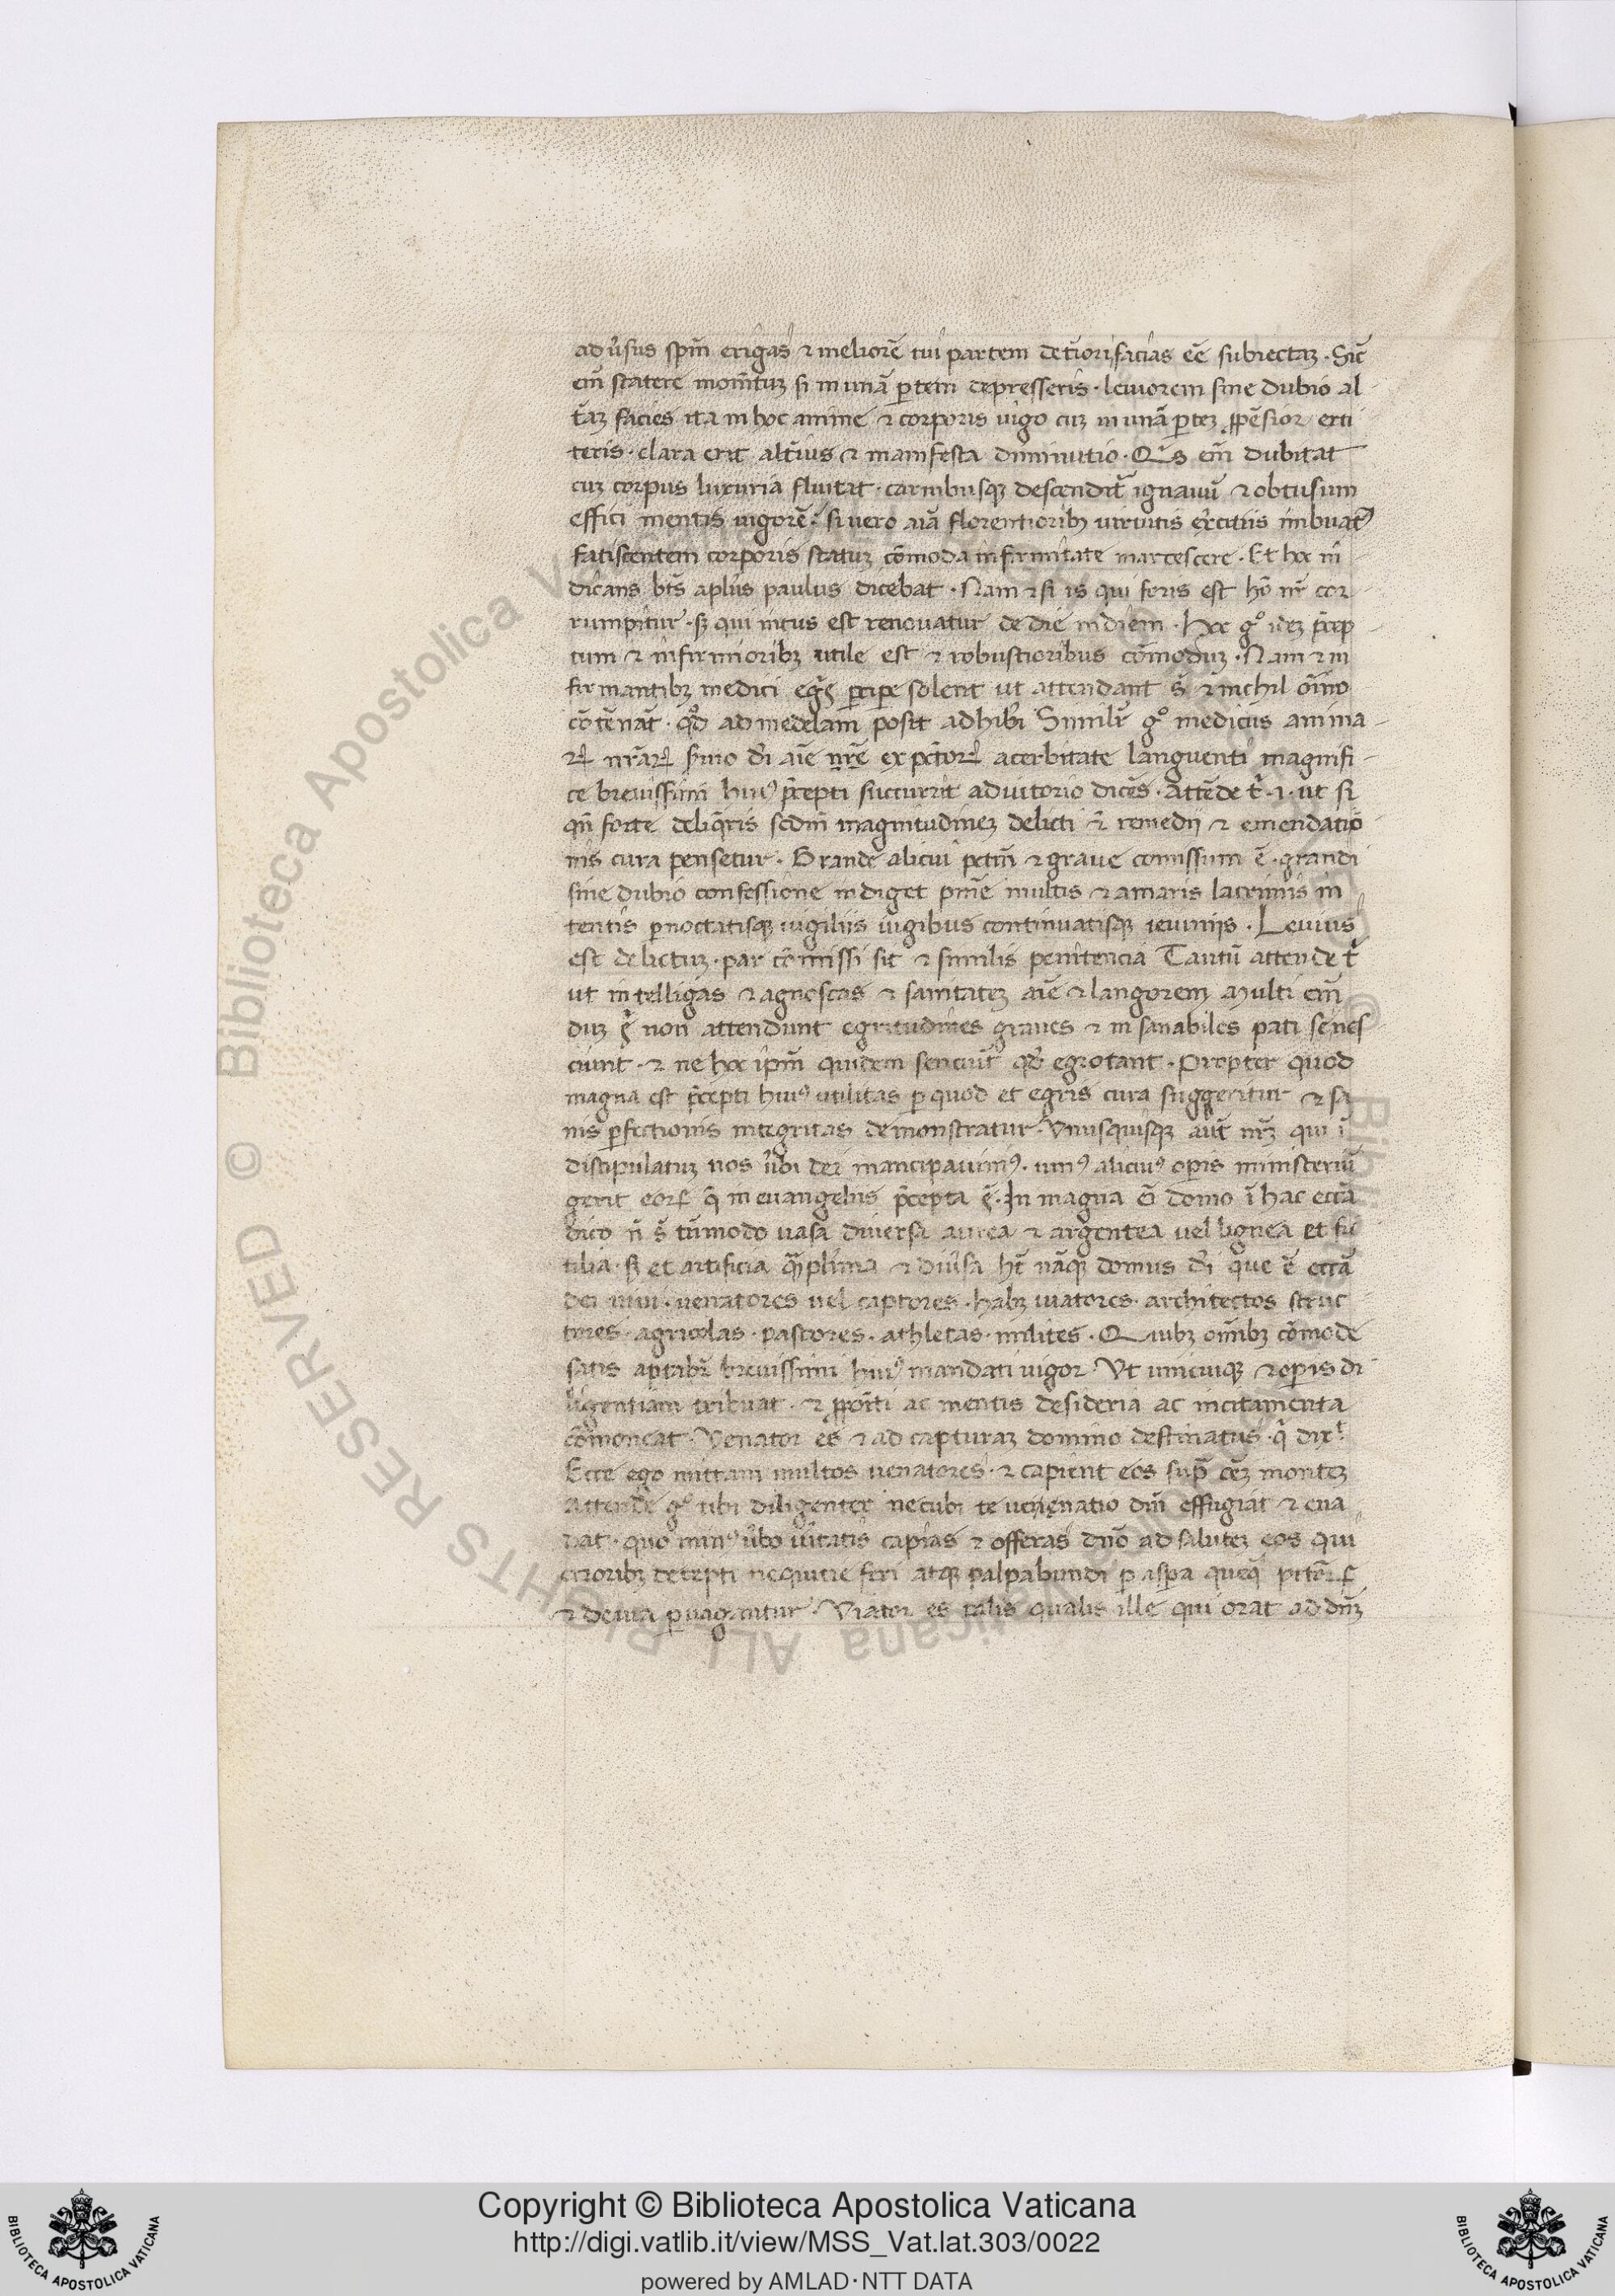 ad ūsus spm̄ erigas ⁊ meliorē tui partem det̄iori facias eē subiectaꝫ · Sic̄
em̄ statere mom̄tuꝫ si in unā ꝑtem depresseris · leuiorem sine dubio al
t̄aꝫ facies ita in hoc anime ⁊ corporis uigo cuꝫ in unā ꝑteꝫ ꝓpēsior exti
teris · clara erit alt̄ius ⁊ manifesta diminutio · Qis em̄ dubitat
cuꝫ corpus luxuria fluitat · carnibusqꝫ descendit̄ ignauū ⁊ obtusum
effici mentis uigorē · si uero aiā florentioribꝫ uirtutis ex̄citiis imbuat᷑
fatiscentem corporis statuꝫ cōmoda infirmitate marcescere · Et hoc in
dicans bt̄s apl̄us paulus dicebat · Nam ⁊ si is qui foris est hō nr̄ cor
rumpitur · sꝫ qui intus est renouatur de die in diem · Hoc gº ideꝫ p̄cep
tum ⁊ infirmioribꝫ utile est ⁊ robustioribus cōmoduꝫ · Nam ⁊ in
firmantibꝫ medici p̄cipe solent ut attendant s̄ ⁊ nichil oīno
cōtēnāt · qd̄ ad medelam posit adhiberi Similr̄ gº medicus anima
ꝝ nr̄aꝝ sermo dī aīe nr̄e ex pctōꝝ acerbitate languenti magnifi
ce breuissimi huiꝰ p̄cepti succurrit adiutorio dicēs · attēde t̄ · i · ut si
qn̄ forte deliq̄ris scdm̄ magnitudineꝫ delicti t̄ remedii ⁊ emendatio
nis cura pensetur · Grande alicui pctm̄ ⁊ graue comissum ē · grandi
sine dubio confessione indiget pn̄ie multis ⁊ amaris lacrimis in
tentis ꝑnoctatisqꝫ uigiliis iugibus continuatisqꝫ ieiuniis · Leuius
est delictuꝫ · par cōmissi sit ⁊ similis penitencia Tantū attende t̄
ut intelligas ⁊ agnoscas ⁊ sanitateꝫ aīe ⁊ langorem Multi em̄
duꝫ s̄ non attendunt egritudines graues ⁊ insanabiles pati se nes
ciunt · ⁊ ne hoc ipm̄ quidem senciūt qd̄ egrotant · Propter quod
magna est p̄cepti huiꝰ utilitas ꝑ quod et egris cura suggeritur ⁊ sa
nis ꝑfectionis integritas demonstratur · Vnusquisqꝫ aut̄ nr̄ꝫ qui ī
discipulatuꝫ nos ūbi dei mancipauimꝰ · uniꝰ alicuiꝰ opis ministeriū
gerit eoꝝ q̄ in euangeliis p̄cepta s̄ · In magna em̄ domo ī hac ecc̄a
dico n̄ s̄ tm̄modo uasa diuersa aurea ⁊ argentea uel lignea et fic
tilia · sꝫ et artificia ꝙ̄plurima ⁊ diūsa hēt nāqꝫ domus dī que ē ecc̄a
dei uiui · uenatores uel captores · habꝫ uiatores · architectos struc
tores · agricolas · pastores · athletas · milites · Quibꝫ omībꝫ cōmode
satis aptabr̄ breuissimi huiꝰ mandati uigor · Vt unicuiqꝫ ⁊ opis di
ligentiam tribuat · ⁊ ꝓpoiti ac mentis desideria ac incitamenta
cōmoneat · Venator es ⁊ ad capturaꝫ domino destinatus · q̄ dixͭ
Ecce ego mittam multos uenatores · ⁊ capient eos sup̄ oēꝫ monteꝫ
Attende gº tibi diligenter necubi te uenenatio dm̄ effugiat ⁊ eua
dat · quo minꝰ ūbo ūitatis capias ⁊ offeras dn̄o ad saluteꝫ eos qui
erroribꝫ decepti nequitie feri atqꝫ palpabundi ꝑ aspa queqꝫ
⁊ deuia ꝑuagantur · Viator es talis qualis ille qui orat ad dm̄ꝫ
Copyright © Biblioteca Apostolica Vaticana
http://digi.vatlib.it/view/MSS_Vat.lat.303/0022
powered by AMLAD·NTT DATA